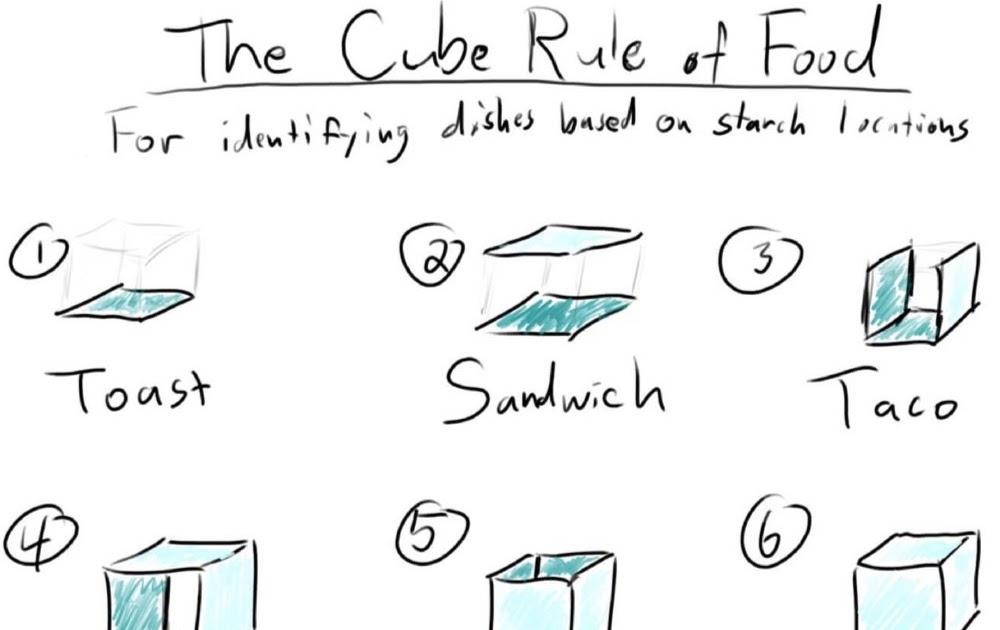 The Cube Rule of Food
For identifying dishes based on starch locations
1 2 3
Toast Sandwich Taco
4 5 6